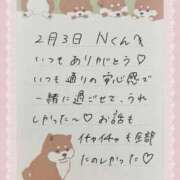 2月3日 Nくんへ
いつもありがとう♡
いつも通りの安心感で
一緒に過ごせて、うれ
しかった〜♡ お話も
イチャイチャも全部
たのしかった♡